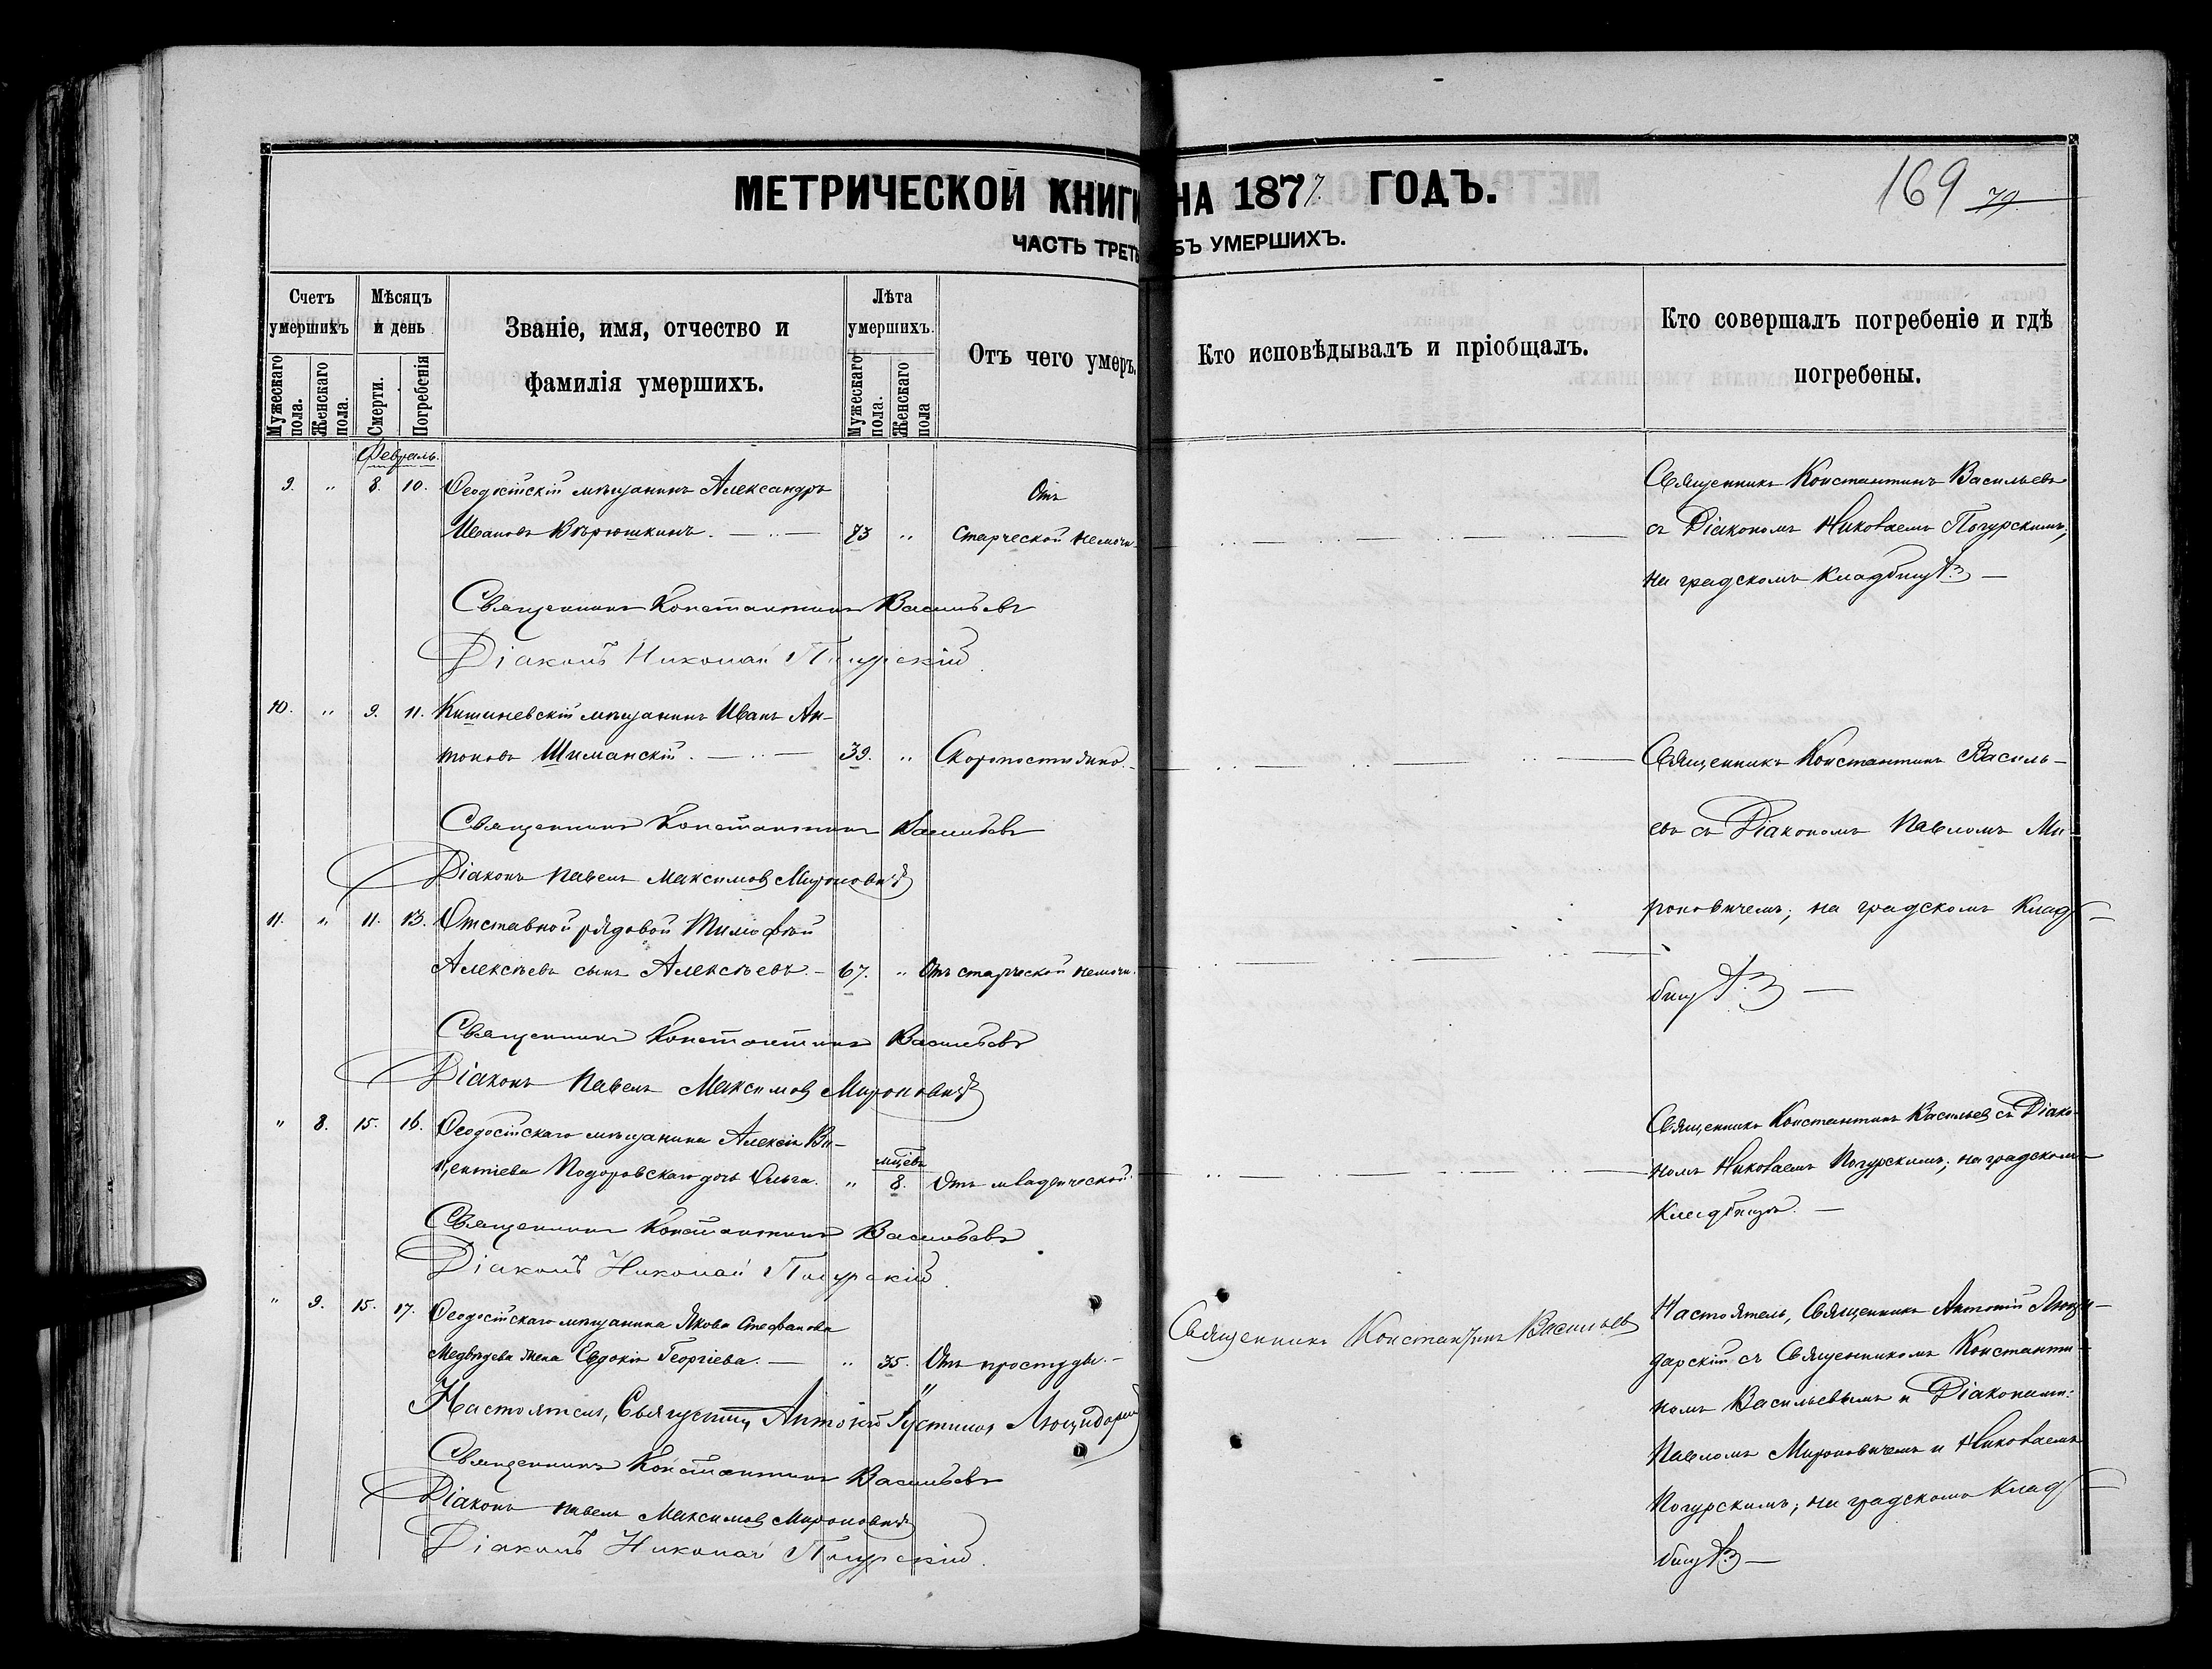 МЕТРИЧЕСКОЙ КНИГИ НА 1877. ГОДЪ.
169 79.
ЧАСТЬ ТРЕТЬ БЪ УМЕРШИХЪ.
Счетъ умершихъ
Мужескаго пола.
Женскаго пола.
Мѣсяцъ и день
Смерти.
Погребенія
Званіе, имя, отчество и
фамилія умершихъ.
Лѣта умершихъ.
Мужескаго пола.
Женскаго пола
Отъ чего умеръ.
Кто исповѣдывалъ и пріобщалъ.
Кто совершалъ погребеніе и гдѣ
погребены.
Февраль.
9. " 8. 10. Ѳеодосійскій мѣщанинъ Александръ
Ивановъ 73 "
Отъ
старческой немочи
Священникъ Константинъ Васильевъ
съ Діакономъ Николаемъ Погурскимъ,
на градскомъ кладбищѣ
Священникъ Константинъ Васильевъ
Діаконъ Николай Погурскій
10. " 9. 11. Кишиневскій мѣщанинъ Иванъ Ан-
тоновъ Шиманскій. 39. " Скоропостижно.
Священникъ Константинъ Василь-
евъ съ Діакономъ Павломъ Ми-
роновичемъ; на градскомъ клад-
бищѣ
Священникъ Константинъ Васильевъ
Діаконъ Павелъ Максимовъ Мироновичъ
11. " 11. 13. Отставной рядовой Тимофѣй
Алексѣевъ сынъ Алексѣевъ. 67. " Отъ старческой немочи.
Священникъ Константинъ Васильевъ
Діаконъ Павелъ Максимовъ Мироновичъ
" 8. 15. 16. Ѳеодосійскаго мѣщанина Алексія Ви-
кентіева Подоровскаго дочь Ольга. " мцевъ 8. Отъ младенческой.
Священникъ Константинъ Васильевъ съ Діако-
номъ Николаемъ Погурскимъ; на градскомъ
кладбищѣ.
Священникъ Константинъ Васильевъ
Діаконъ Николай Погурскій
" 9. 15. 17. Ѳеодосійскаго мѣщанина Якова Стефанова
Медвѣдева жена Евдокія Георгіева. " 35. Отъ простуды.
Священникъ Константинъ Васильевъ
Настоятель, Священникъ Антоній Люци-
дарскій съ Священникомъ Константи-
номъ Васильевымъ и Діаконами:
Павломъ Мироновичемъ и Николаемъ
Погурскимъ; на градскомъ клад-
бищѣ
Настоятель, Священникъ Антоній
Священникъ Константинъ Васильевъ
Діаконъ Павелъ Максимовъ Мироновичъ
Діаконъ Николай Погурскій